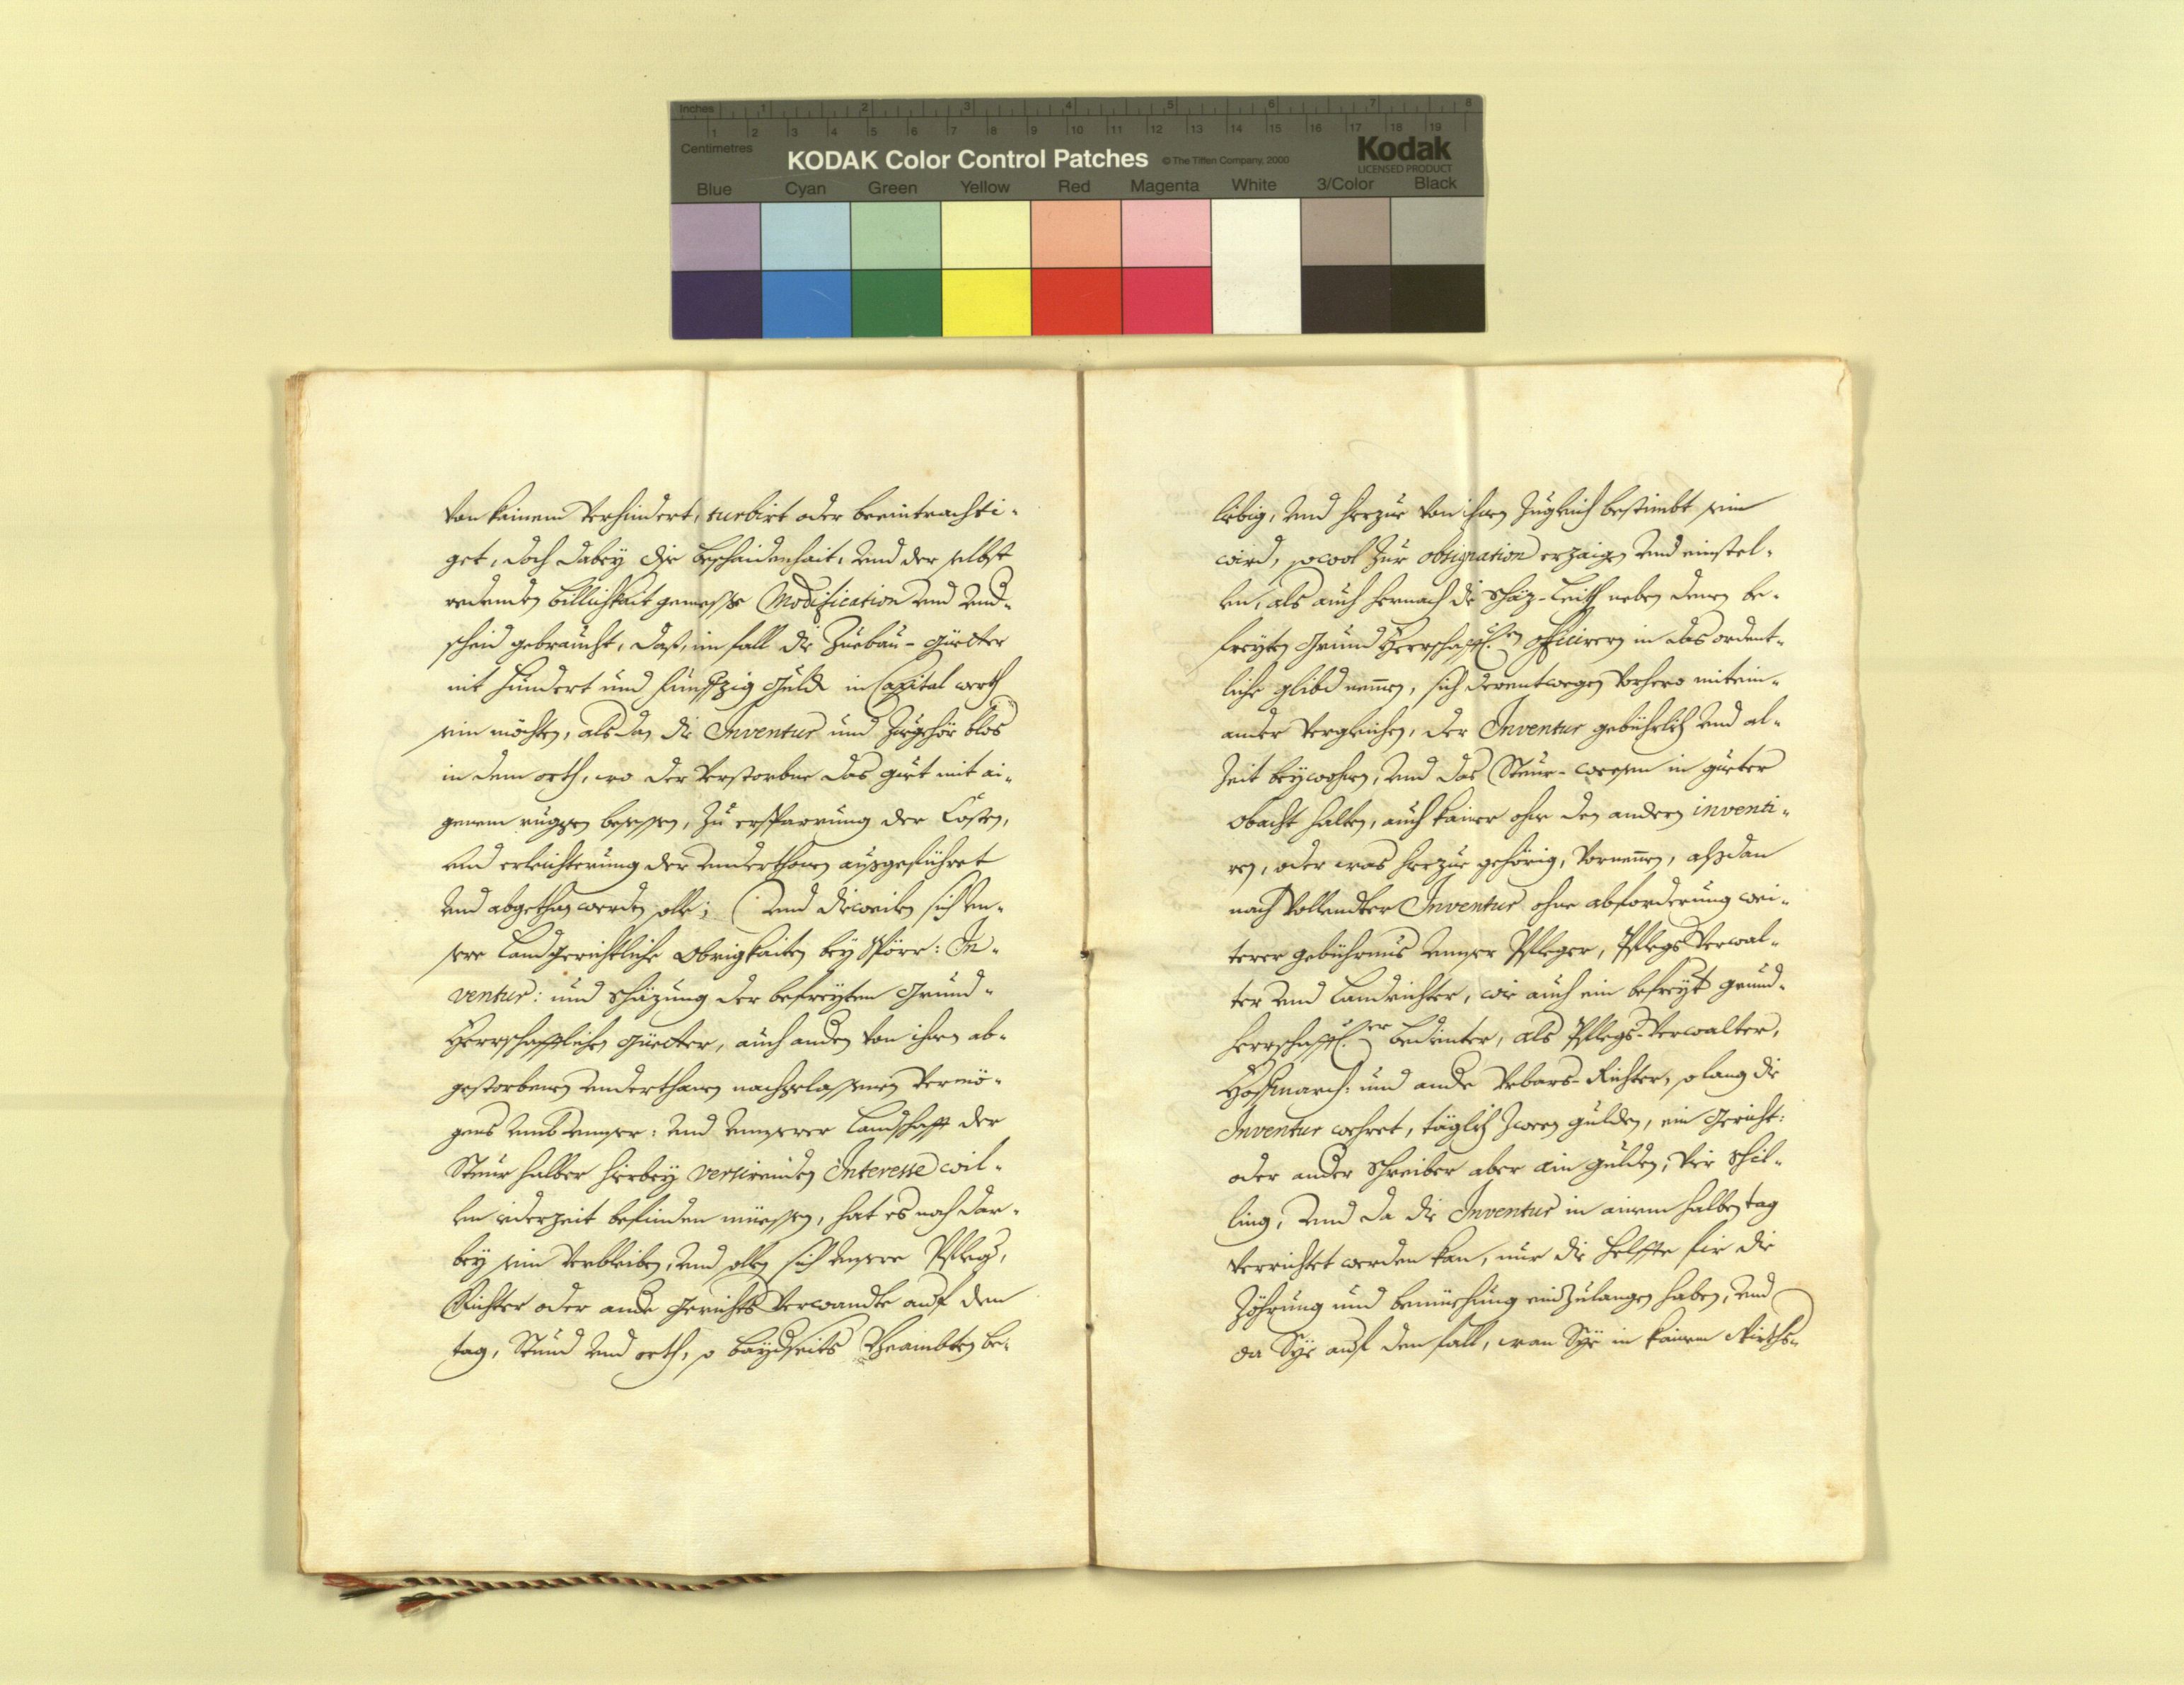 Inches 1 2 3 4 5 6 7 8
Centimetres 1 2 3 4 5 6 7 8 9 10 11 12 13 14 15 16 17 18 19
KODAK Color Control Patches © The Tiffen Company, 2000 Kodak
LICENSED PRODUCT
Blue Cyan Green Yellow Red Magenta White 3/Color Black
von keinem verhindert, turbirt oder beeintrachti-
get, doch dabey die bescheidenhait, und der selbst
redenden billichkait gemesse Modification und Und-
scheid gebraucht, daß, im fall die Zuebau-Güetter
nit hundert und funffzig Guld in Capital werth
sein möchten, alsdan die Inventur und Zuegehör blos
in dem orth, wo der verstorbne das guet mit ai-
genem ruggen besessen, zu ersparrung der Cösten,
und erleichterung der underthonen außgeführet
und abgethan werden solle; Und dieweilen sich un-
sere Landgerichtliche Obrigkaiten bey Spörr: In-
ventur: und schäzung der befreyten Grund-
Herrschafftlichen Güetter, auch anden von ihnen ab-
gestorbenen underthanen nachgelassenen vermö-
gens umb unser: und unserer Landschafft der
Steur halber hierbey versirenden Interesse wil-
len iederzeit befinden müessen, hat es noch dar-
bey sein verbleiben, und sollen sich unsere Pfleg,
Richter oder ande Gerichts Verwandte auf den
tag, Stund und orth, so baydseits Beambten be-
liebig, und hierzue von ihnen zugleich bestimbt sein
wird, sowol zur obsignation erzaigen und einstel-
len, als auch hernach die Schäz-Leith neben denen be-
freyten Grund Herrschafftl.en Officirern in das ordent-
liche glibd nemmen, sich derentwegen vorhero mitein-
ander vergleichen, der Inventur gebührlich und al-
zeit beywohnen, und das Steur-weesen in gueter
obacht halten, auch kainer ohne den andern inventi-
ren, oder was hierzue gehörig, vornemmen, alßdan
nach vollendter Inventur ohne abforderung wei-
terer gebührnus unser Pfleger, Pflegs Verwal-
ter und Landrichter, wie auch ein befreyt grund-
herrschafftl.er bedienter, als Pflegs-Verwalter,
Hoffmarch: und ande Urbars-Richter, solang die
Inventur wehret, täglich zween gulden, ein Gericht:
oder ander Schreiber aber ain gulden, vier Schil-
ling, und da die Inventur in ainem halben tag
verrichtet werden kan, nur die helffte für die
Zöhrung und bemüehung einzulangen haben, und
da Sye auf den fall, wan Sye in kainem Wirths-